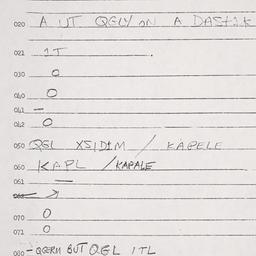 020 A UT QGLY ON A DASTIK
021 1T .
030 0
040 0
041 -
042 0
050 QGL XSIDIM / KAPELE
060 KAPL / KAPALE
061 —
070 0
071 0
080 - QGRM BUT QGL ITL